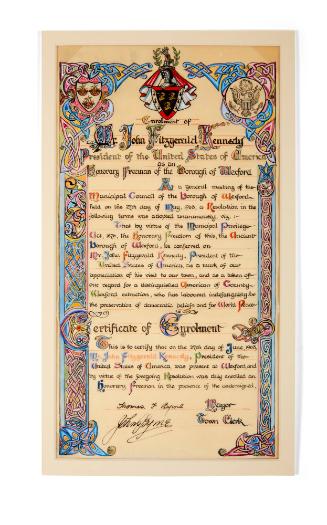 Enrolment of
Mr. John Fitzgerald Kennedy
President of the United States of America
as an
Honorary Freeman of the Borough of Wexford.
At a general meeting of the
Municipal Council of the Borough of Wexford,
held on the 27th day of May, 1963, a Resolution in the
following terms was adopted unanimously, viz.:-
That by virtue of the Municipal Privilege
Act, 1876, the Honorary Freedom of this, the Ancient
Borough of Wexford, be conferred on
Mr. John Fitzgerald Kennedy, President of the
United States of America, as a mark of our
appreciation of his visit to our town, and as a token of
our regard for a distinguished American of County
Wexford extraction, who has laboured indefatigably for
the preservation of democratic beliefs and for World Peace
Certificate of Enrolment
This is to certify that on the 27th day of June, 1963,
Mr. John Fitzgerald Kennedy, President of the
United States of America, was present at Wexford and
by virtue of the foregoing Resolution was duly enrolled an
Honorary Freeman in the presence of the undersigned,
Thomas F Byrne Mayor
Town Clerk